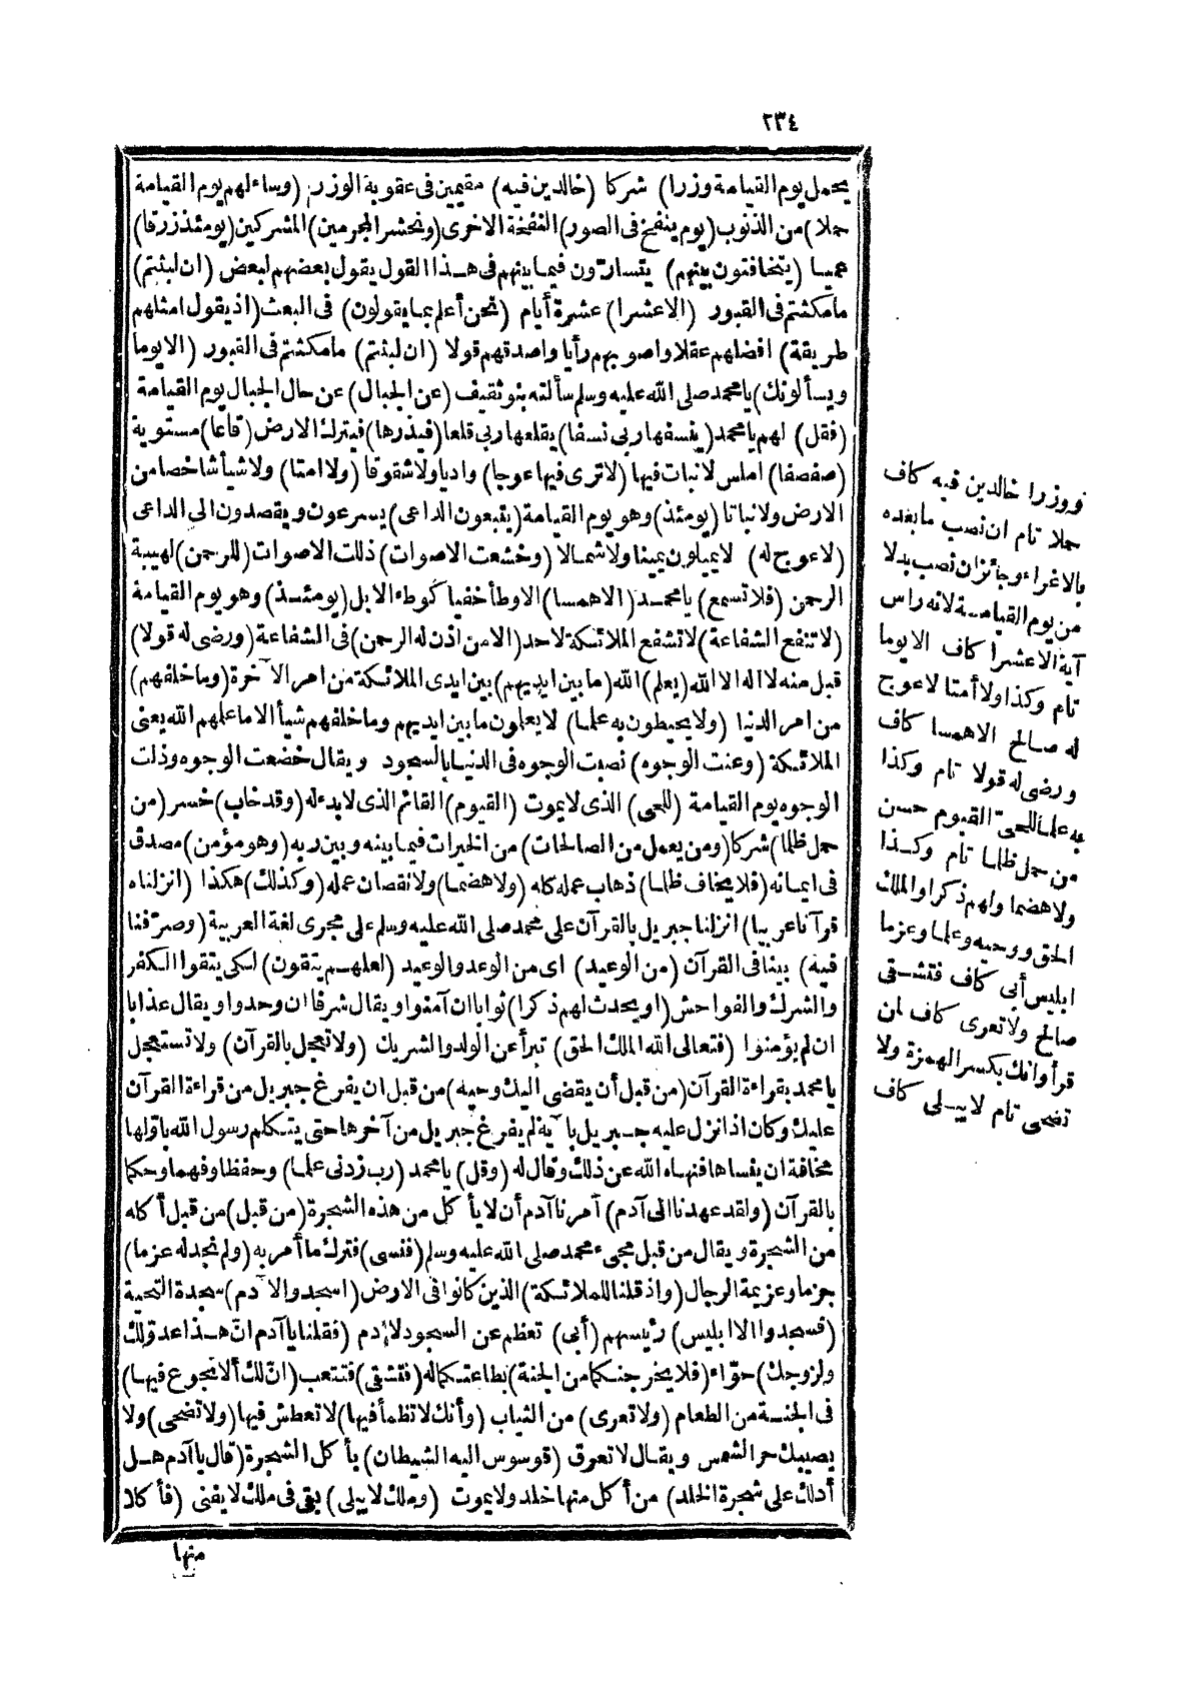 ٢٣٤
يحمل يوم القيامة وزرا) شركا (خالدين فيه) مقيمين فى عقوبة الوزر (وساء لهم يوم القيامة
حملا) من الذنوب (يوم ينفخ فى الصور) النفخة الاخرى (ونحشر المجرمين) المشركين (يومئذ زرقا)
عميا (يتخافتون بينهم) يتسارّون فيما بينهم فى هذا القول يقول بعضهم لبعض (ان لبثتم)
ما مكثتم فى القبور (الا عشرا) عشرة أيام (نحن أعلم بما يقولون) فى البعث (اذ يقول امثلهم
طريقة) افضلهم عقلا واصوبهم رأيا واصدقهم قولا (ان لبثتم) ما مكثتم فى القبور (الا يوما
ويسألونك) يا محمد صلى الله عليه وسلم سألته بنو ثقيف (عن الجبال) عن حال الجبال يوم القيامة
(فقل) لهم يا محمد (ينسفها ربى نسفا) يقلعها ربى قلعا (فيذرها) فيترك الارض (قاعا) مستوية
(صفصفا) املس لا نبات فيها (لا ترى فيها عوجا) واديا ولا شقوقا (ولا امتا) ولا شيأ شاخصا من
الارض ولا نباتا (يومئذ) وهو يوم القيامة (يتبعون الداعى) يسرعون ويقصدون الى الداعى
(لا عوج له) لا يميلون يمينا ولا شمالا (وخشعت الاصوات) ذلت الاصوات (للرحمن) لهيبة
الرحمن (فلا تسمع) يا محمد (الا همسا) الا وطأ خفيا كوطء الابل (يومئذ) وهو يوم القيامة
(لا تنفع الشفاعة) لا تشفع الملائكة لاحد (الا من اذن له الرحمن) فى الشفاعة (ورضى له قولا)
قبل منه لا اله الا الله (يعلم) الله (ما بين ايديهم) بين ايدى الملائكة من امر الآخرة (وما خلفهم)
من امر الدنيا (ولا يحيطون به علما) لا يعلون ما بين ايديهم وما خلفهم شيأ الا ما علمهم الله يعنى
الملائكة (وعنت الوجوه) نصبت الوجوه فى الدنيا بالسجود ويقال خضعت الوجوه وذلت
الوجوه يوم القيامة (للحى) الذى لا يموت (القيوم) القائم الذى لا بدء له (وقد خاب) خسر (من
حمل ظلما) شركا (ومن يعمل من الصالحات) من الخيرات فيما بينه وبين ربه (وهو مؤمن) مصدق
فى ايمانه (فلا يخاف ظلما) ذهاب عمله كله (ولا هضما) ولا نقصان عمله (وكذلك) هكذا (انزلناه
قرآنا عربيا) انزلنا جبريل بالقرآن على محمد صلى الله عليه وسلم على مجرى لغة العربية (وصرّفنا
فيه) بينا فى القرآن (من الوعيد) اى من الوعد والوعيد (لعلهم يتقون) لكى يتقوا الكفر
والشرك والفواحش (او يحدث لهم ذكرا) ثوابا ان آمنوا ويقال شرفا ان وحدوا ويقال عذابا
ان لم يؤمنوا (فتعالى الله الملك الحق) تبرأ عن الولد والشريك (ولا تعجل بالقرآن) ولا تستعجل
يا محمد بقراءة القرآن (من قبل أن يقضى اليك وحيه) من قبل ان يفرغ جبريل من قراءة القرآن
عليك وكان اذا نزل عليه جبريل بآية لم يفرغ جبريل من آخرها حتى يتكلم رسول الله باوّلها
مخافة ان ينساها فنهاه الله عن ذلك وقال له (وقل) يا محمد (رب زدنى علما) وحفظا وفهما وحكما
بالقرآن (ولقد عهدنا الى آدم) أمرنا آدم أن لا يأكل من هذه الشجرة (من قبل) من قبل أكله
من الشجرة ويقال من قبل مجىء محمد صلى الله عليه وسلم (فنسى) فترك ما أمر به (ولم نجد له عزما)
جزما وعزيمة الرجال (واذ قلنا للملائكة) الذين كانوا فى الارض (اسجدوا لآدم) سجدة التحية
(فسجدوا الا ابليس) رئيسهم (أبى) تعظم عن السجود لآدم (فقلنا يا آدم انّ هذا عدوّ لك
ولزوجك) حوّاء (فلا يخرجنكما من الجنة) بطاعتكما له (فتشقى) فتتعب (انّ لك ألا تجوع فيها)
فى الجنة من الطعام (ولا تعرى) من الثياب (وأنك لا تظمأ فيها) لا تعطش فيها (ولا تضحى) ولا
يصيبك حر الشمس ويقال لا تعرق (فوسوس اليه الشيطان) بأكل الشجرة (قال يا آدم هل
أدلك على شجرة الخلد) من أكل منها خلد ولا يموت (وملك لا يبلى) بقى فى ملك لا يفنى (فأكلا
منها
ووزرا خالدين فيه كاف
حملا تام ان نصب ما بعده
بالاغراء وجائز ان نصب بدلا
من يوم القيامة لانه راس
آية الا عشرا كاف الا يوما
تام وكذا ولا أمتا لا عوج
له صالح الا همسا كاف
ورضى له قولا تام وكذا
به علما للحى القيوم حسن
من حمل ظلما تام وكذا
ولا هضما ولهم ذكرا والملك
الحق ووحيه وعلما وعزما
ابليس أبى كاف فتشقى
صالح ولا تعرى كاف لمن
قرأ وانك بكسر الهمزة ولا
تضحى تام لا يبلى كاف